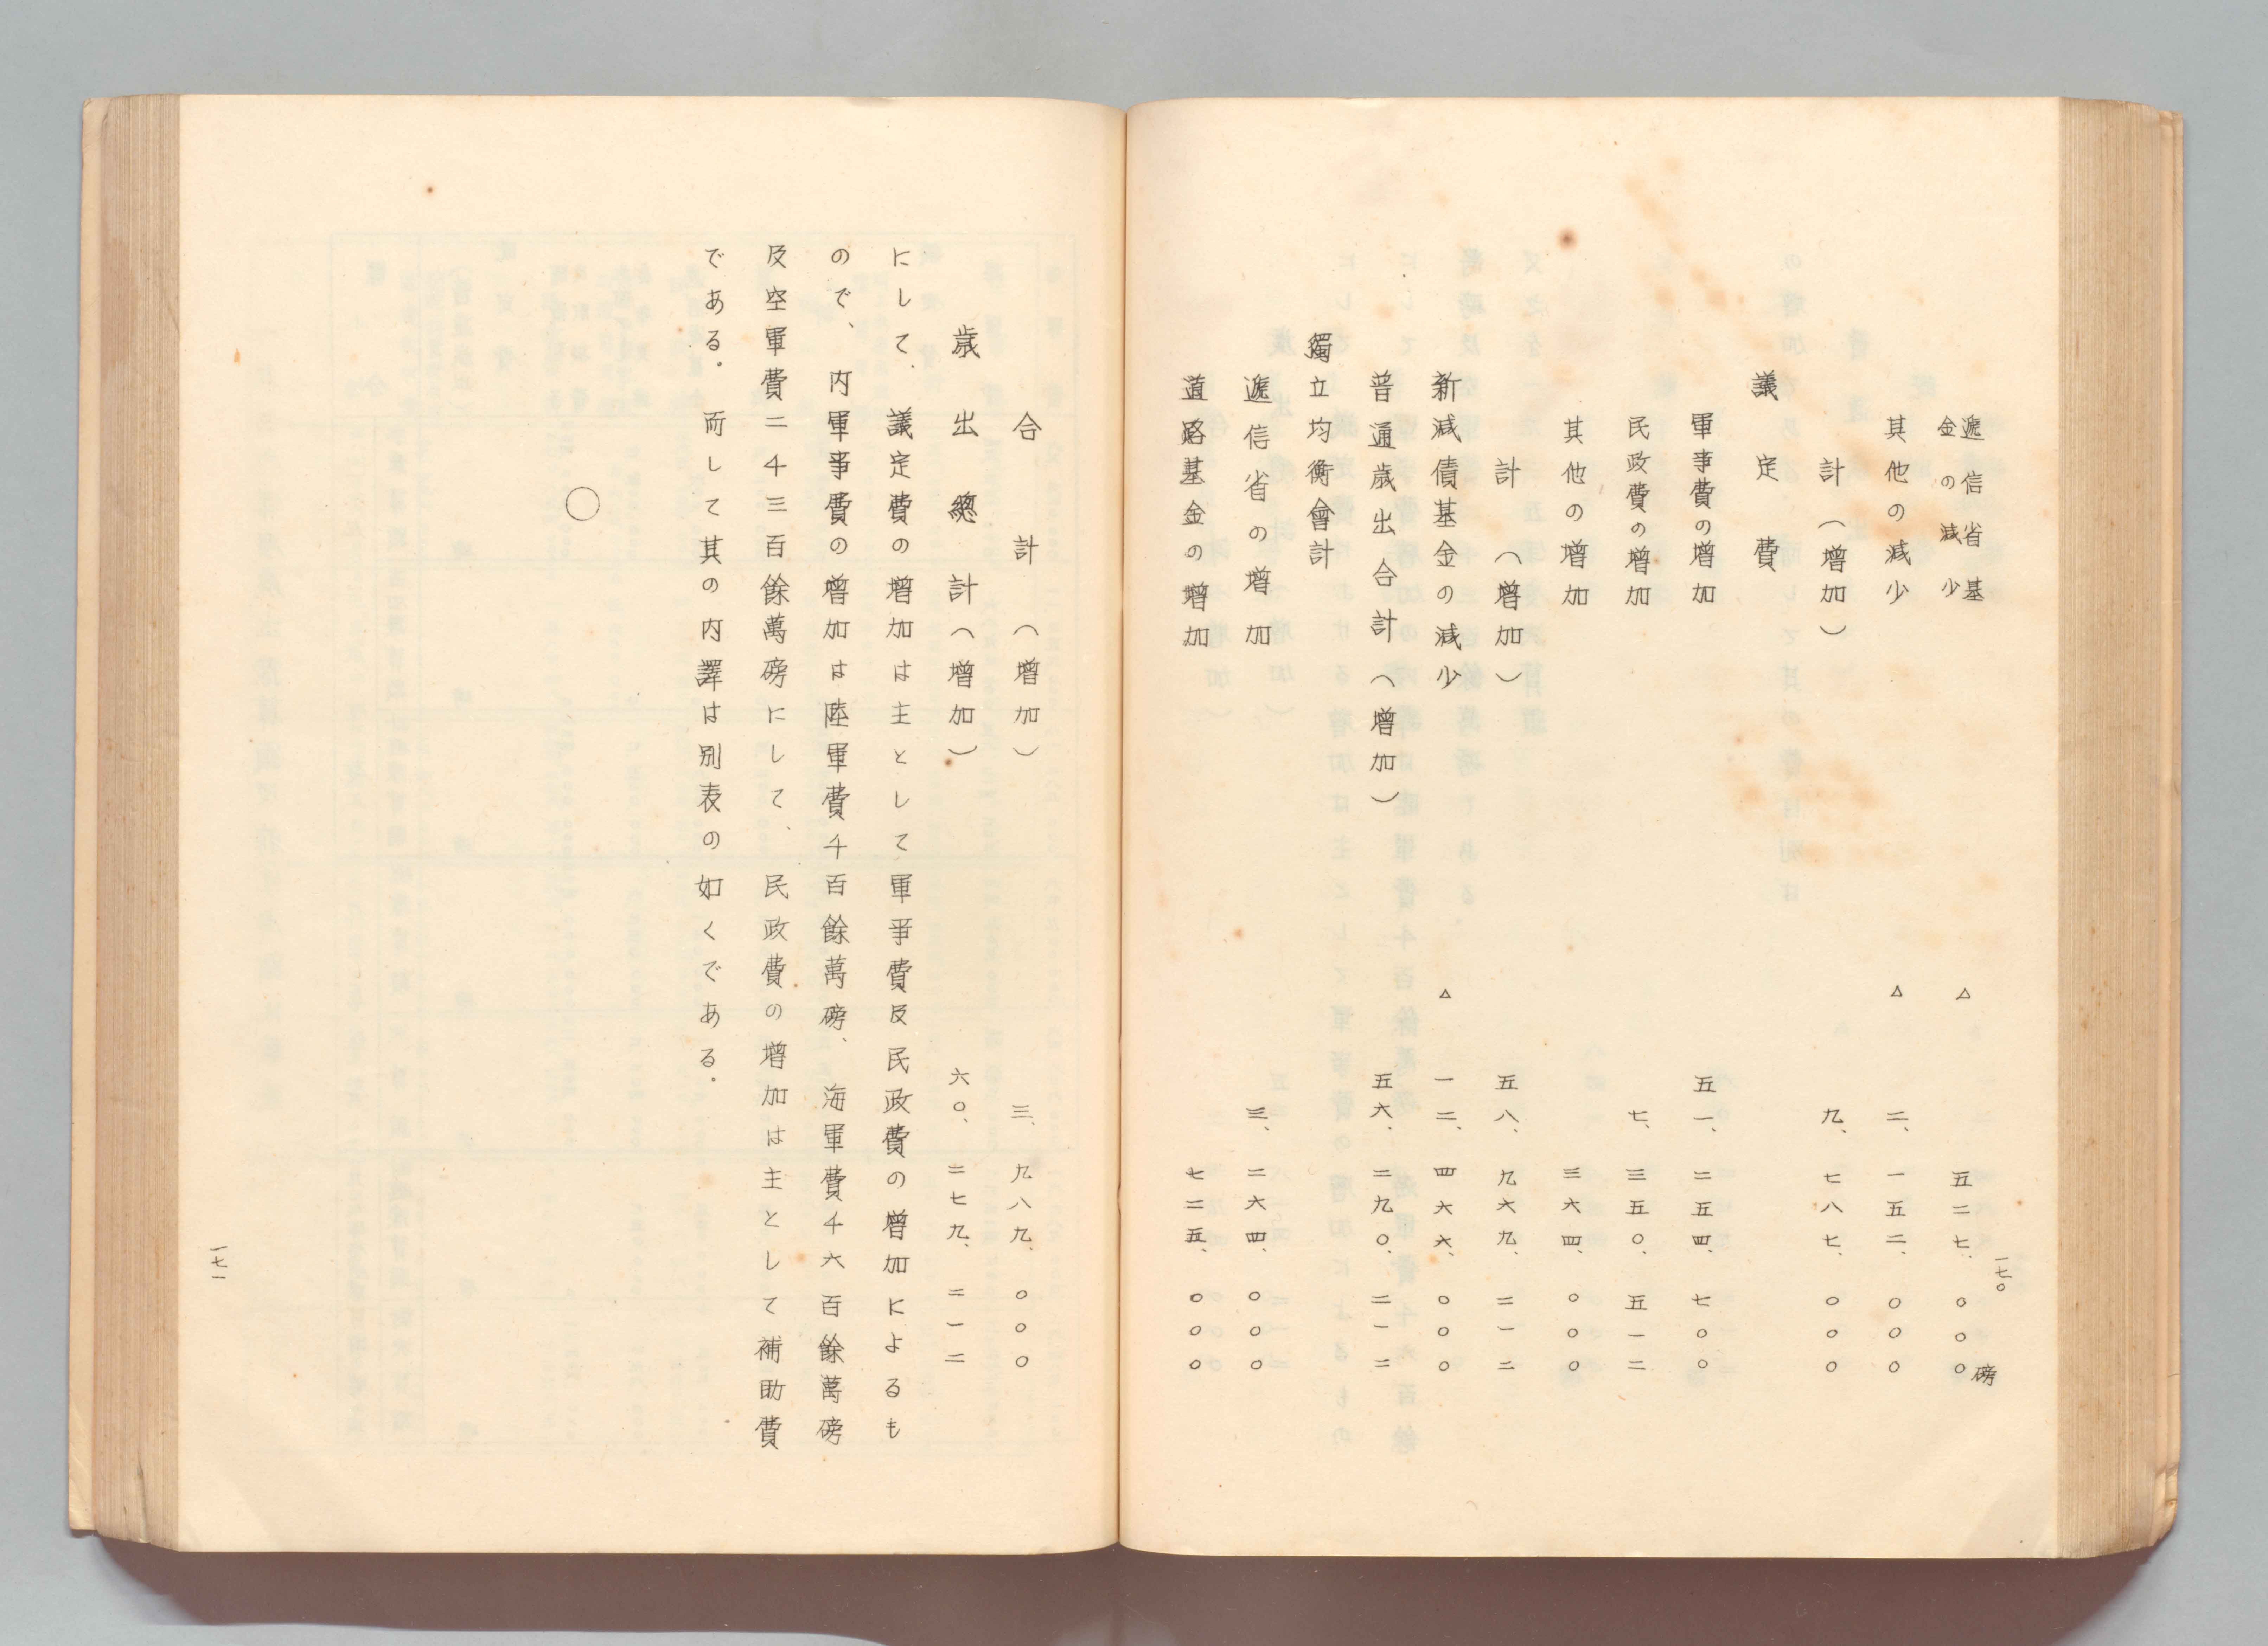 一七〇
磅
遞信省基金の減少 △ 五二七、〇〇〇
其他の減少 △ 二、一五二、〇〇〇
計（増加） 九、七八七、〇〇〇
議定費
軍事費の増加 五一、二五四、七〇〇
民政費の増加 七、三五〇、五一二
其他の増加 三六四、〇〇〇
計（増加） 五八、九六九、二一二
新減債基金の減少 △ 一二、四六六、〇〇〇
普通歳出合計（増加） 五六、二九〇、二一二
獨立均衡會計
遞信省の増加 三、二六四、〇〇〇
道路基金の増加 七二五、〇〇〇
合計（増加） 三、九八九、〇〇〇
歳出總計（増加） 六〇、二七九、二一二
にして、議定費の増加は主として軍事費及民政費の増加によるも
ので、内軍事費の増加は陸軍費千百餘萬磅、海軍費千六百餘萬磅
及空軍費二千三百餘萬磅にして、民政費の増加は主として補助費
である。而して其の内譯は別表の如くである。
○
一七一